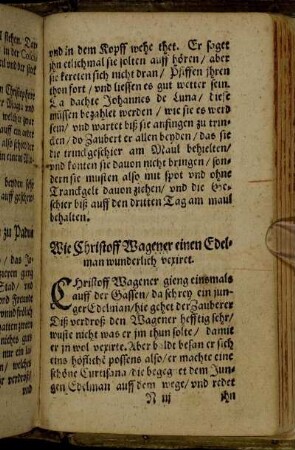 vnd in dem Kopff wehe thet. Er saget
jhn etlichmal sie solten auff hören / aber
sie kereten sich nicht dran / Pfiffen jhren
thon fort / vnd liessen es gut wetter sein.
Da dachte Johannes de Luna / diese
müssen bezahlet werden / wie sie es werd
sein / vnd wartet biß sie anfingen zu trin-
cken / do Zaubert er allen beyden / das sie
die trinckgeschier am Maul behielten /
vnd konten sie dauon nicht bringen / son-
dern sie musten also mit spot vnd ohne
Tranckgelt dauon ziehen / vnd die Ge-
schier biß auff den dritten Tag am maul
behalten.
Wie Christoff Wagener einen Edel-
man wunderlich vexiret.
Christoff Wagener gieng einsmals
auff der Gassen / da schrey ein jun-
ger Edelman / hie gehet der Zauberer
Diß verdroß den Wagener hefftig sehr /
wuste nicht was er jm thun solte / damit
er jn wol vexirte. Aber baldt besan er sich
eins höffliche possens also / er machte eine
schöne Curtisana / die begegnet dem Jun-
gen Edelman auff dem wege / vnd redet
N iij jhn